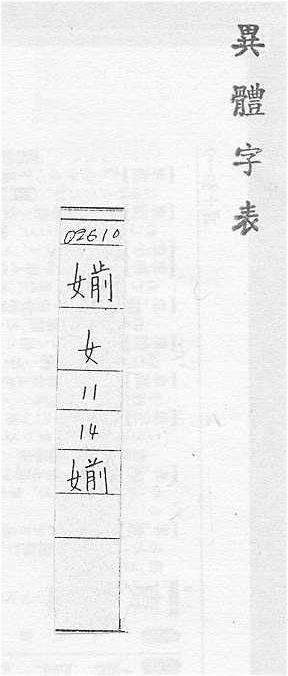 異體字表
02610
媊
女
11
14
媊